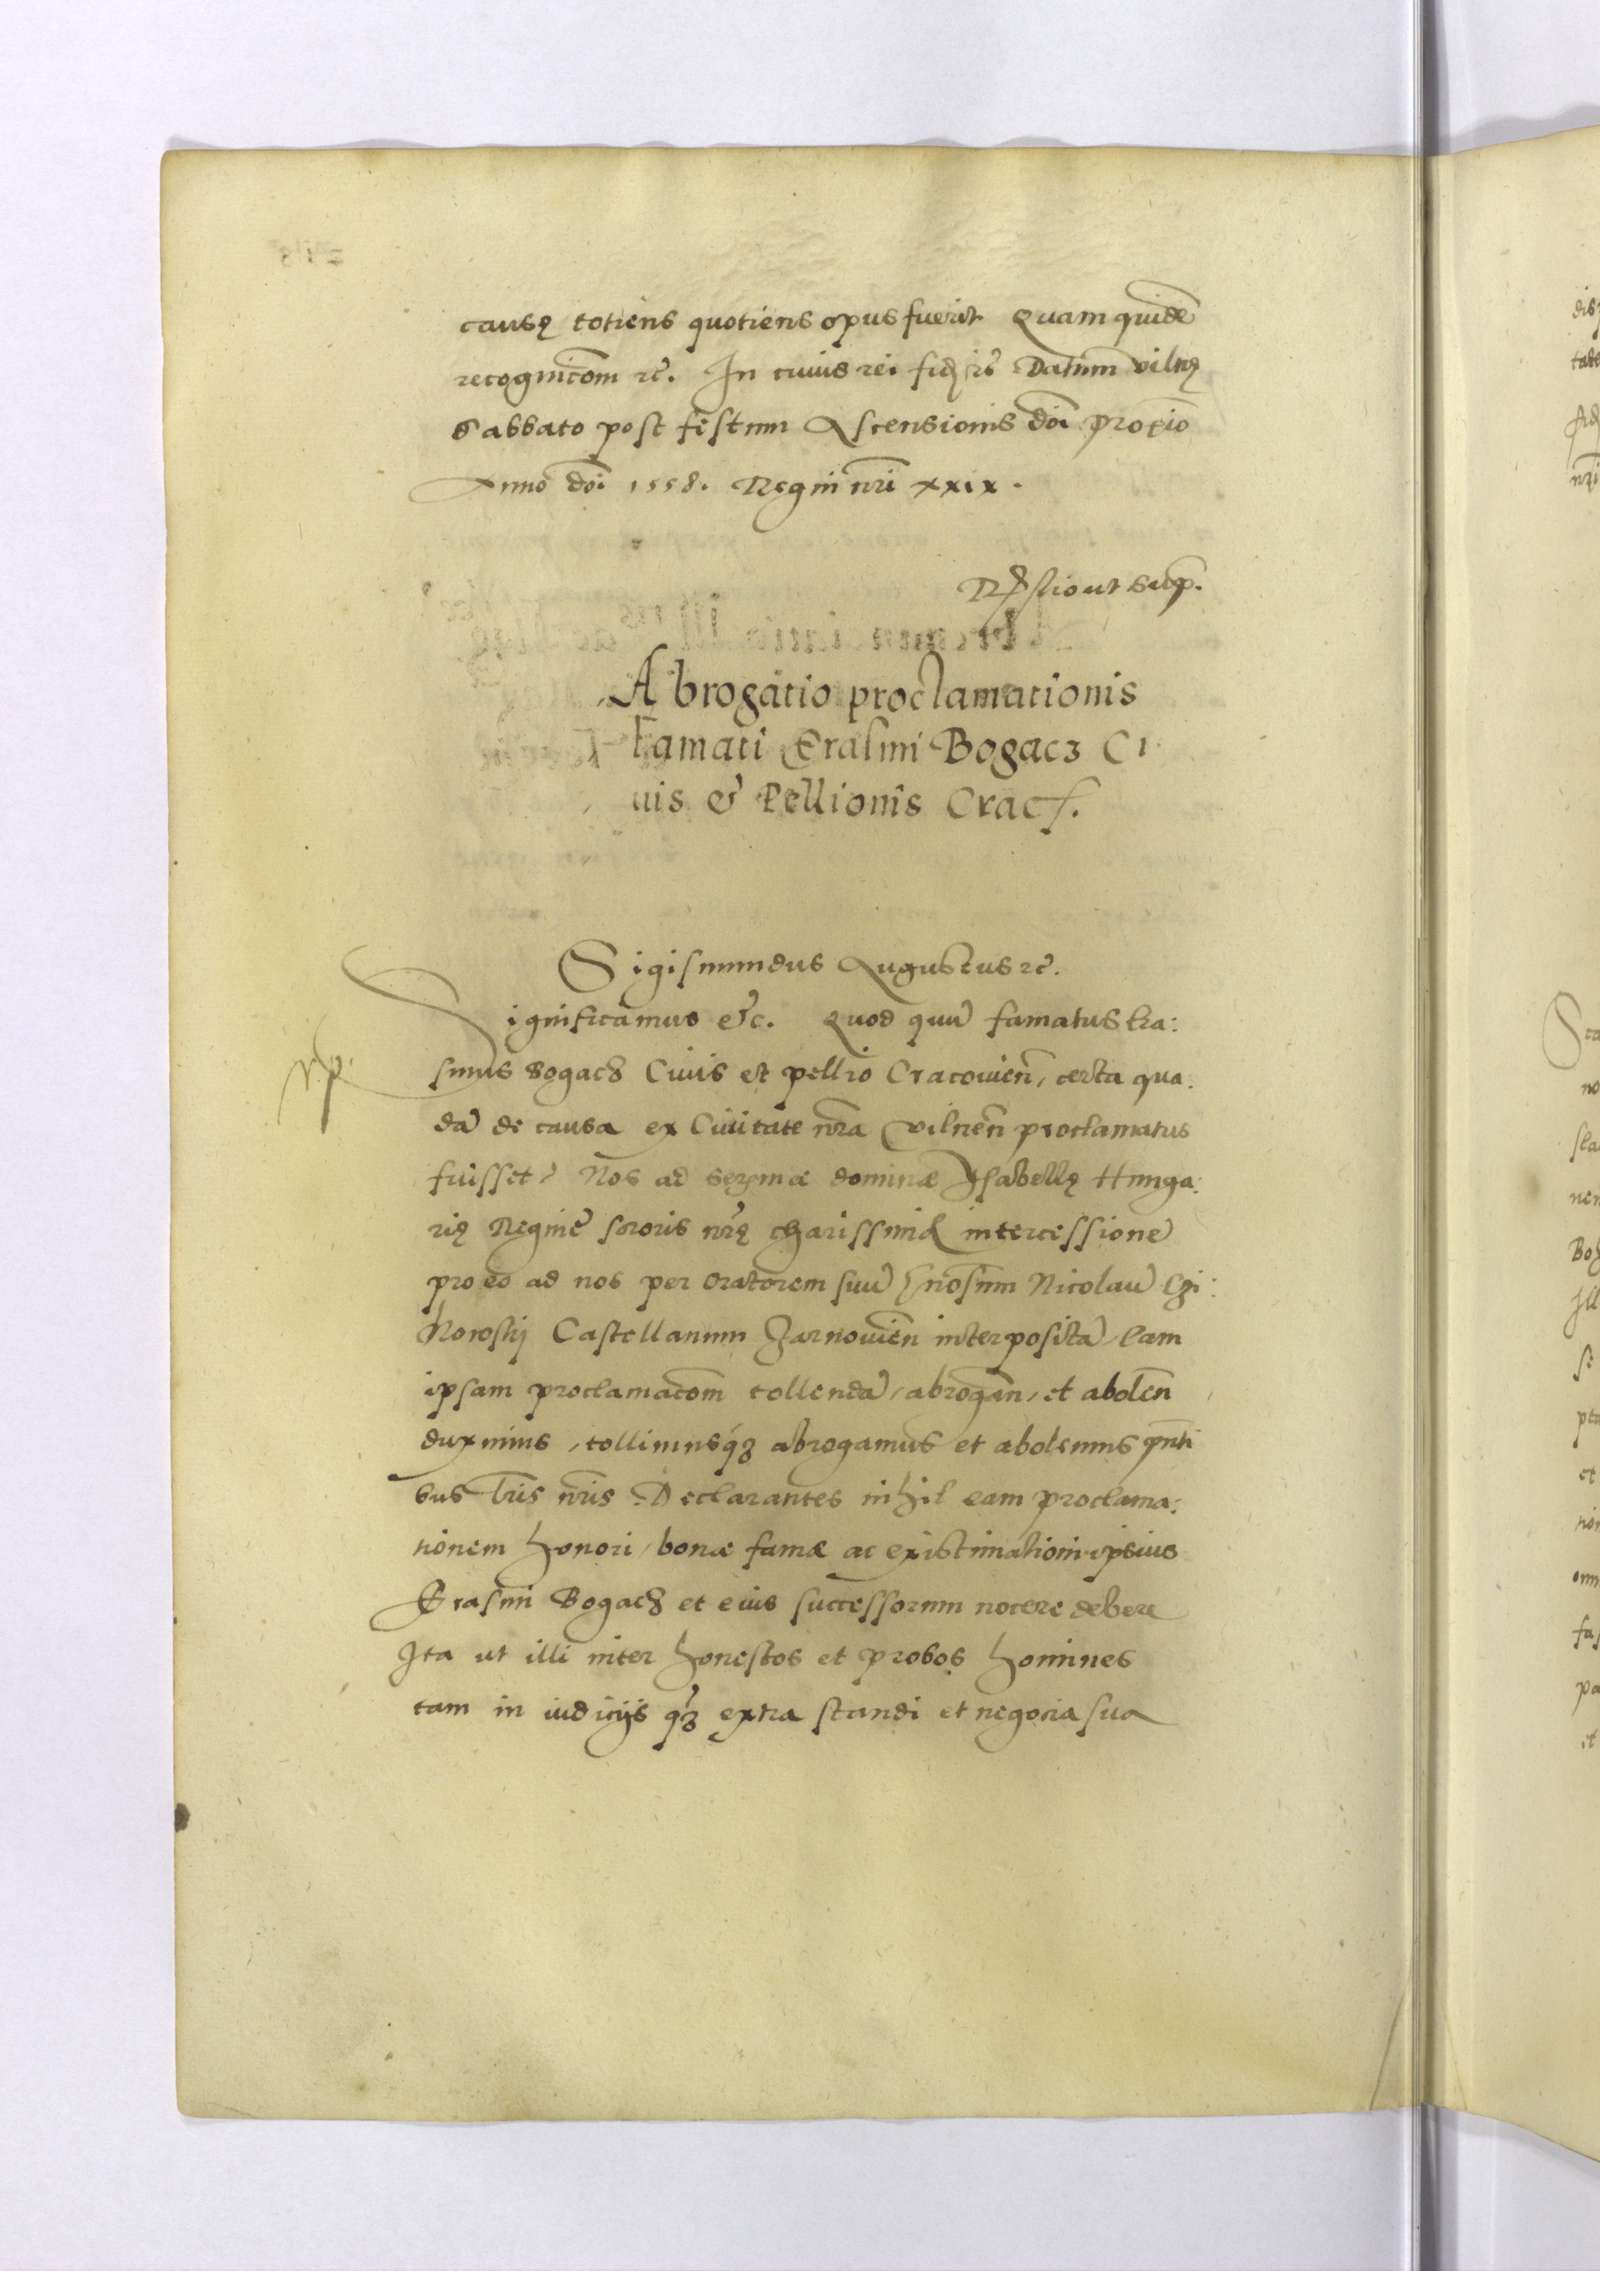 causę totiens quotiens opus fuerit Quam quidē
recognicōm rc. In cuius rei fid rc Datum vilnę
Sabbato post festum Ascensionis doi proxīo
Anno doi 1558. Regni nri xxix.
ut sup.
Abrogatio proclamationis
Famati Erasmi Bogacz Ci
uis & Pellionis Crac.
Sigismundus Augustus rc.
Significamus &c. Quod quū famatus Era:
smus Bogacz Ciuis et pellio Cracouien, certa qua
dā de causa ex Ciuitate nra vilnen proclamatus
fuisset, Nos ad sermae dominae Isabellę Hunga:
rię Reginę sororis nrę charissimę intercessionē
pro eo ad nos per oratorem suū Nicolaū
Castellanum interpositā Eam
ipsam proclamacōm tollendā, abrogan, et abolen
duximus, tollimusq3 abrogamus et abolemus pnti
bus lris nris Declarantes nihil eam proclama:
tionem honori, bonae famae ac existimationi ipsius
Erasmi Bogacz et eius successorum nocere debere
Ita ut illi inter honestos et probos homines
tam in iudicijs q3 extra standi et negocia sua